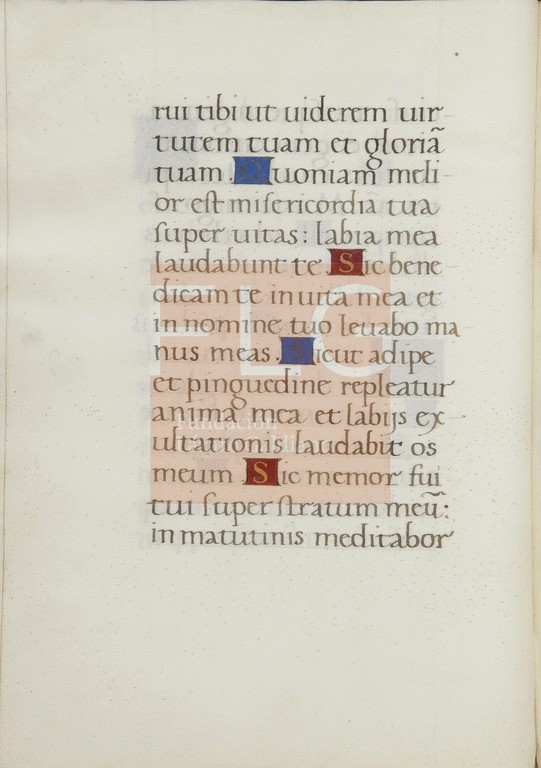 rui tibi ut uiderem uir-
tutem tuam et gloriã
tuam. Quoniam meli-
or est misericordia tua
super uitas: labia mea
laudabunt te. Sic bene-
dicam te in uita mea et
in nomine tuo leuabo ma
nus meas. Sicut adipe
et pinguedine repleatur
anima mea et labijs ex-
ultationis laudabit os
meum. Sic memor fui
tui super stratum meũ:
in matutinis meditabor
FLG
Fundación